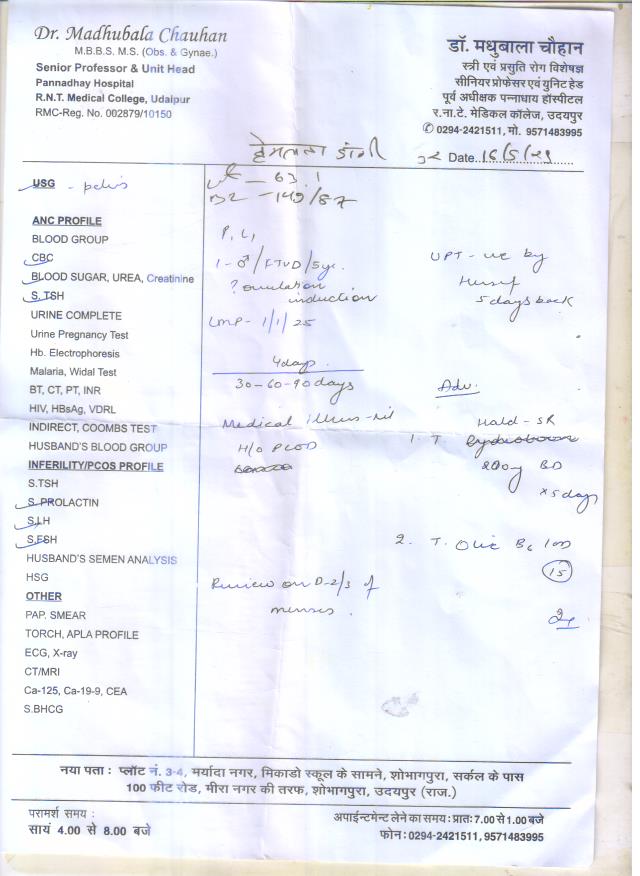 Dr. Madhubala Chauhan
M.B.B.S. M.S. (Obs. & Gynae.)
Senior Professor & Unit Head
Pannadhay Hospital
R.N.T. Medical College, Udaipur
RMC-Reg. No. 002879/10150
डॉ. मधुबाला चौहान
स्त्री एवं प्रसुति रोग विशेषज्ञ
सीनियर प्रोफेसर एवं युनिट हेड
पूर्व अधीक्षक पन्नाधाय हॉस्पीटल
र.ना.टे. मेडिकल कॉलेज, उदयपुर
✆ 0294-2421511, मो. 9571483995
हेमलता डांगी
Date..16/5/25......
USG - pelvis
ANC PROFILE
BLOOD GROUP
CBC
BLOOD SUGAR, UREA, Creatinine
S. TSH
URINE COMPLETE
Urine Pregnancy Test
Hb. Electrophoresis
Malaria, Widal Test
BT, CT, PT, INR
HIV, HBsAg, VDRL
INDIRECT, COOMBS TEST
HUSBAND'S BLOOD GROUP
INFERILITY/PCOS PROFILE
S.TSH
S. PROLACTIN
S.LH
S.FSH
HUSBAND'S SEMEN ANALYSIS
HSG
OTHER
PAP. SMEAR
TORCH, APLA PROFILE
ECG, X-ray
CT/MRI
Ca-125, Ca-19-9, CEA
S.BHCG
wt - 63.1
- 149/87
P1 L1
1 - ♂ / FTVD / 5yr.
? ovulation
induction
LMP - 1/1/25
4days.
30-60-90 days
Medical illness - nil
H/o PCOD
Review on D-2/3 of
menses.
UPT - -ve by
Herself
5 days back
Adv.
- SR
1. T.
200 BD
x 5 days
2. T.
15
नया पता : प्लॉट नं. 3-4, मर्यादा नगर, मिकाडो स्कूल के सामने, शोभागपुरा, सर्कल के पास
100 फीट रोड, मीरा नगर की तरफ, शोभागपुरा, उदयपुर (राज.)
परामर्श समय :
सायं 4.00 से 8.00 बजे
अपाईन्टमेन्ट लेने का समय : प्रातः 7.00 से 1.00 बजे
फोन : 0294-2421511, 9571483995